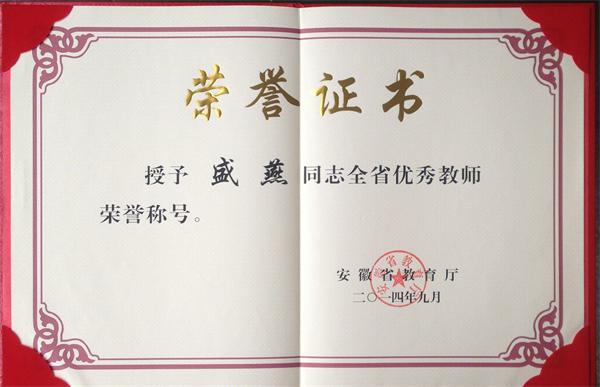 荣誉证书
授予 盛燕 同志全省优秀教师
荣誉称号。
安徽省教育厅
二〇一四年九月
安徽省教育厅